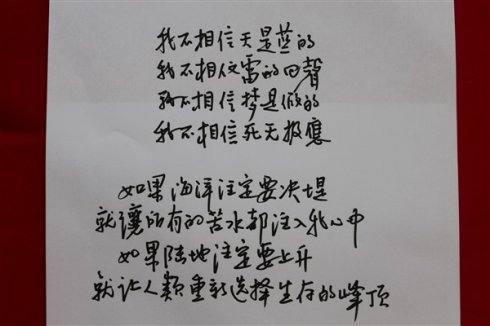 我不相信天是蓝的
我不相信雷的回聲
我不相信梦是假的
我不相信死无报應
如果海洋注定要决堤
就讓所有的苦水都注入我心中
如果陆地注定要上升
就让人類重新选择生存的峰顶